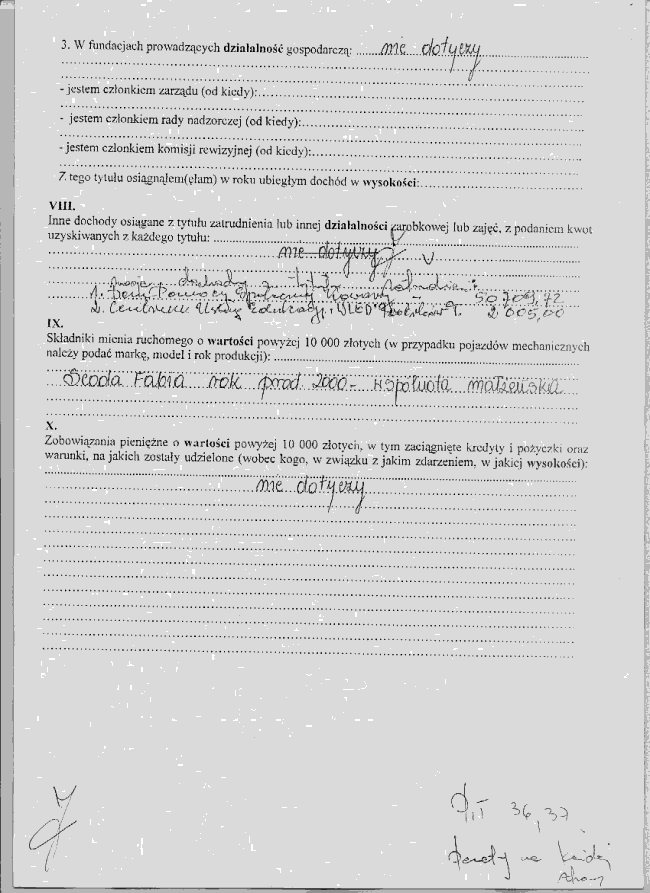 3. W fundacjach prowadzących działalność gospodarczą: nie dotyczy
- jestem członkiem zarządu (od kiedy):
- jestem członkiem rady nadzorczej (od kiedy):
- jestem członkiem komisji rewizyjnej (od kiedy):
Z tego tytułu osiągnąłem(ęłam) w roku ubiegłym dochód w wysokości:
VIII.
Inne dochody osiągane z tytułu zatrudnienia lub innej działalności zarobkowej lub zajęć, z podaniem kwot
uzyskiwanych z każdego tytułu:
nie dotyczy
moje dochody z tytułu zatrudnienia:
1. Dom Pomocy Społecznej - 50 709,72
2. Centrum Usług Edukacji "WLED" 2 005,00
IX.
Składniki mienia ruchomego o wartości powyżej 10 000 złotych (w przypadku pojazdów mechanicznych
należy podać markę, model i rok produkcji):
Scoda Fabia rok prod 2000 - wspólnota małżeńska
X.
Zobowiązania pieniężne o wartości powyżej 10 000 złotych, w tym zaciągnięte kredyty i pożyczki oraz
warunki, na jakich zostały udzielone (wobec kogo, w związku z jakim zdarzeniem, w jakiej wysokości):
nie dotyczy
PIT 36, 37
parafy na każdej